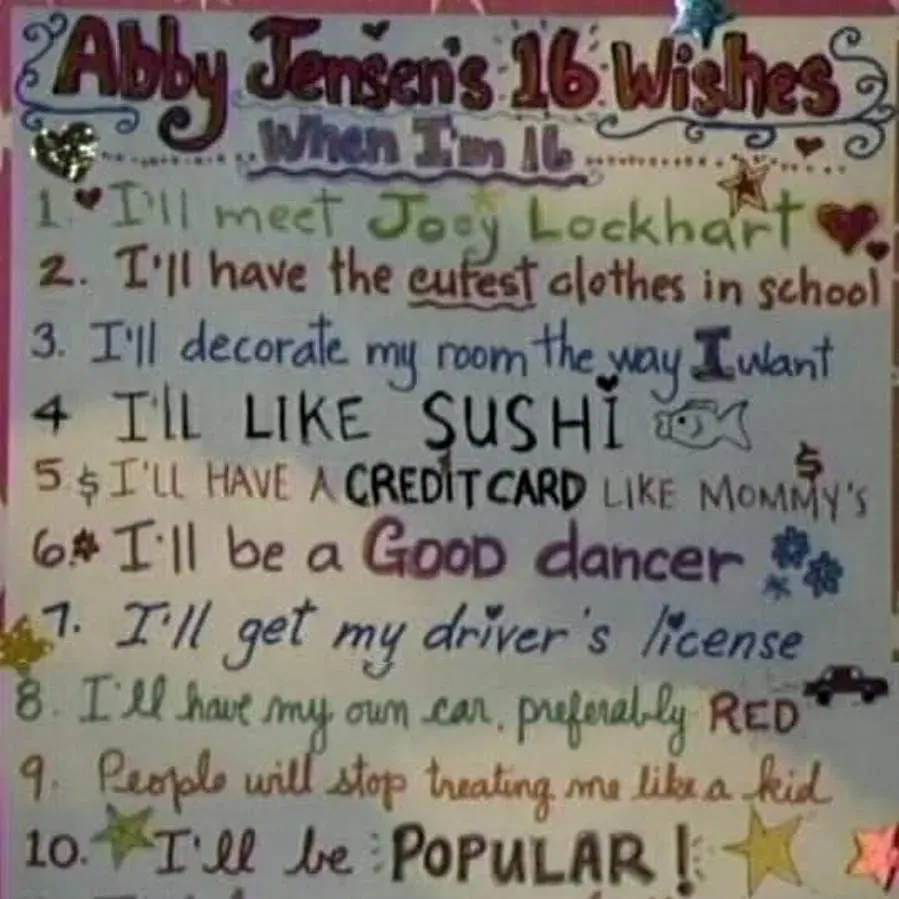 Abby Jensen's 16 Wishes
When I'm 16
1. I'll meet Joey Lockhart
2. I'll have the cutest clothes in school
3. I'll decorate my room the way I want
4 I'LL LIKE SUSHI
5 $ I'LL HAVE A CREDIT CARD LIKE MOMMY'S $
6. I'll be a GOOD dancer
7. I'll get my driver's license
8. I'll have my own car, preferably RED
9. People will stop treating me like a kid
10. I'll be POPULAR!